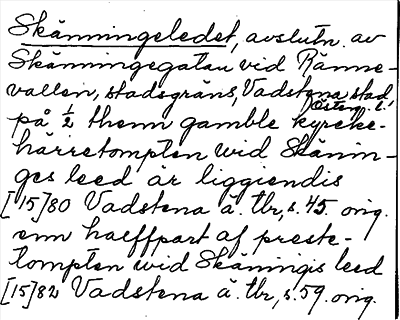 Skänningeledet, avslutn. av
Skänningegatan vid Ränne-
vallen, stadsgräns, Vadstena stad
Österg. l.
på ½ thenn gamble kyrcke-
härretompten wid Skänin-
ges leed är liggiendis
[15]80 Vadstena ä. tbr, s. 45. orig.
enn halffpart af preste-
tompten wid Skäningis leed
[15]82 Vadstena ä. tbr, s. 59. orig.